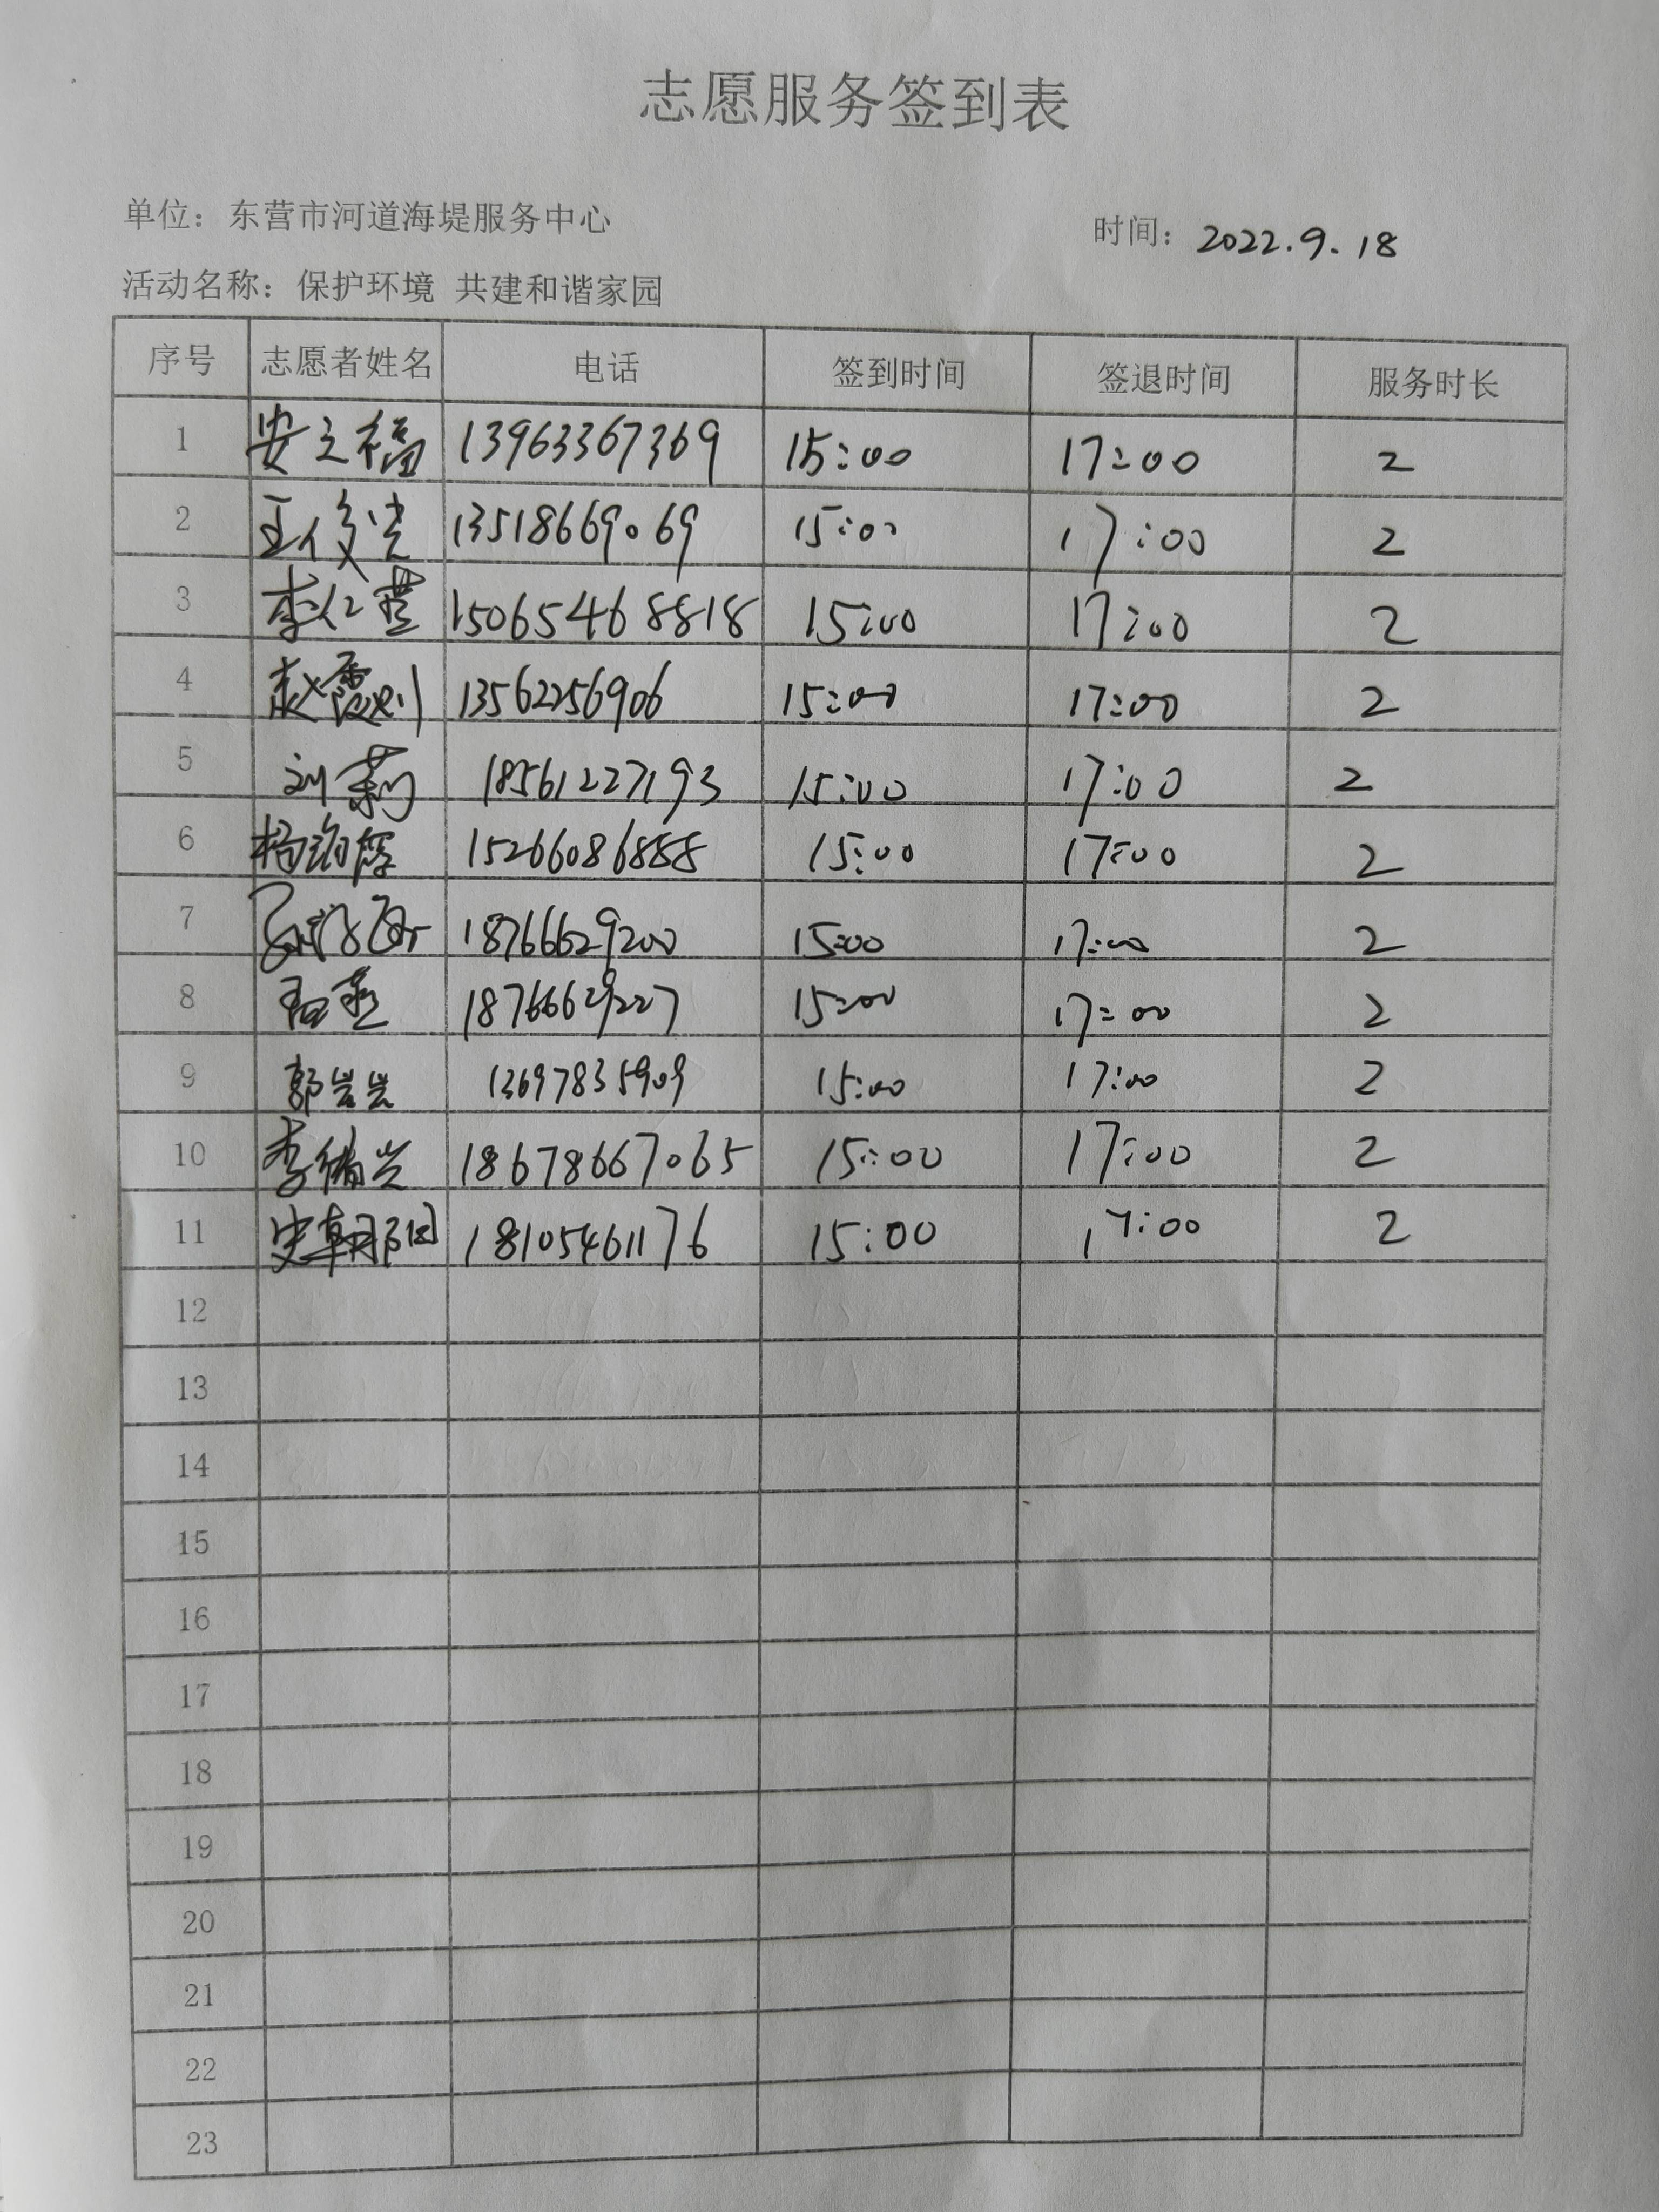 志愿服务签到表
单位：东营市河道海堤服务中心 时间：2022.9.18
活动名称：保护环境 共建和谐家园
序号 志愿者姓名 电话 签到时间 签退时间 服务时长
1 安立福 13963367369 15:00 17:00 2
2 王俊光 13518669069 15:00 17:00 2
3 李仁 15065468818 15:00 17:00 2
4 赵霞 13562256906 15:00 17:00 2
5 刘莉 18561227193 15:00 17:00 2
6 杨 辉 15266086888 15:00 17:00 2
7 18766629200 15:00 17:00 2
8 燕 18766629227 15:00 17:00 2
9 郭岩岩 13697835909 15:00 17:00 2
10 李 18678667065 15:00 17:00 2
11 史朝 18105461176 15:00 17:00 2
12
13
14
15
16
17
18
19
20
21
22
23